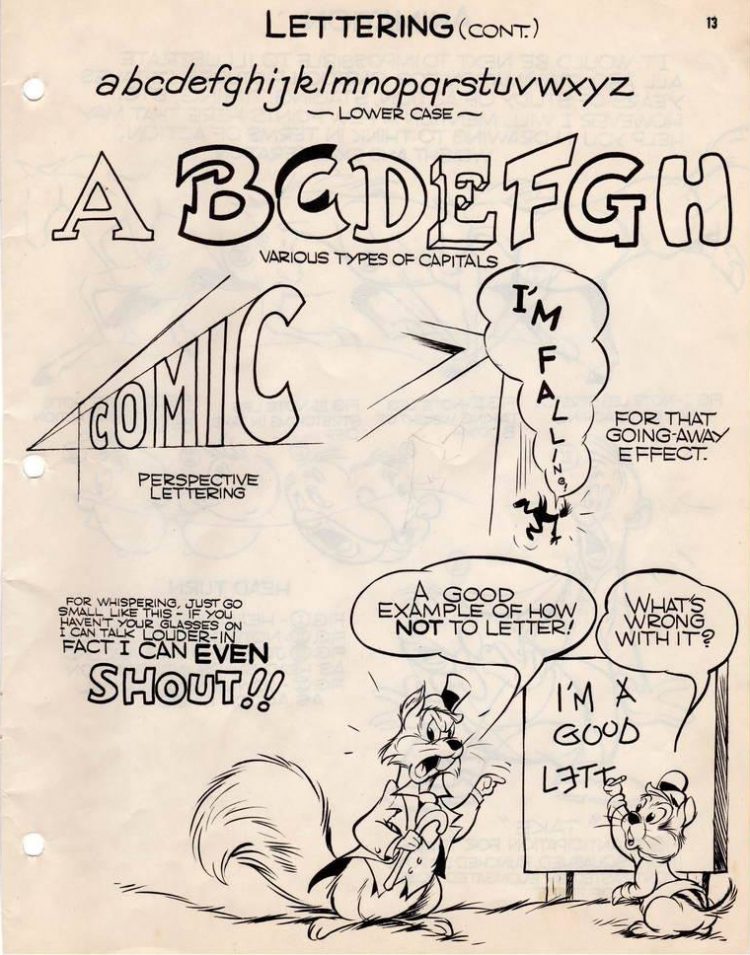 LETTERING (CONT.)
13
abcdefghijklmnopqrstuvwxyz
~ LOWER CASE ~
A BCDEFGH
VARIOUS TYPES OF CAPITALS
COMIC
PERSPECTIVE
LETTERING
I'M
FALLING!
FOR THAT
GOING-AWAY
EFFECT.
FOR WHISPERING, JUST GO
SMALL LIKE THIS - IF YOU
HAVEN'T YOUR GLASSES ON
I CAN TALK LOUDER-IN
FACT I CAN EVEN
SHOUT!!
A GOOD
EXAMPLE OF HOW
NOT TO LETTER!
WHAT'S
WRONG
WITH IT?
I'M A
GOOD
LETT